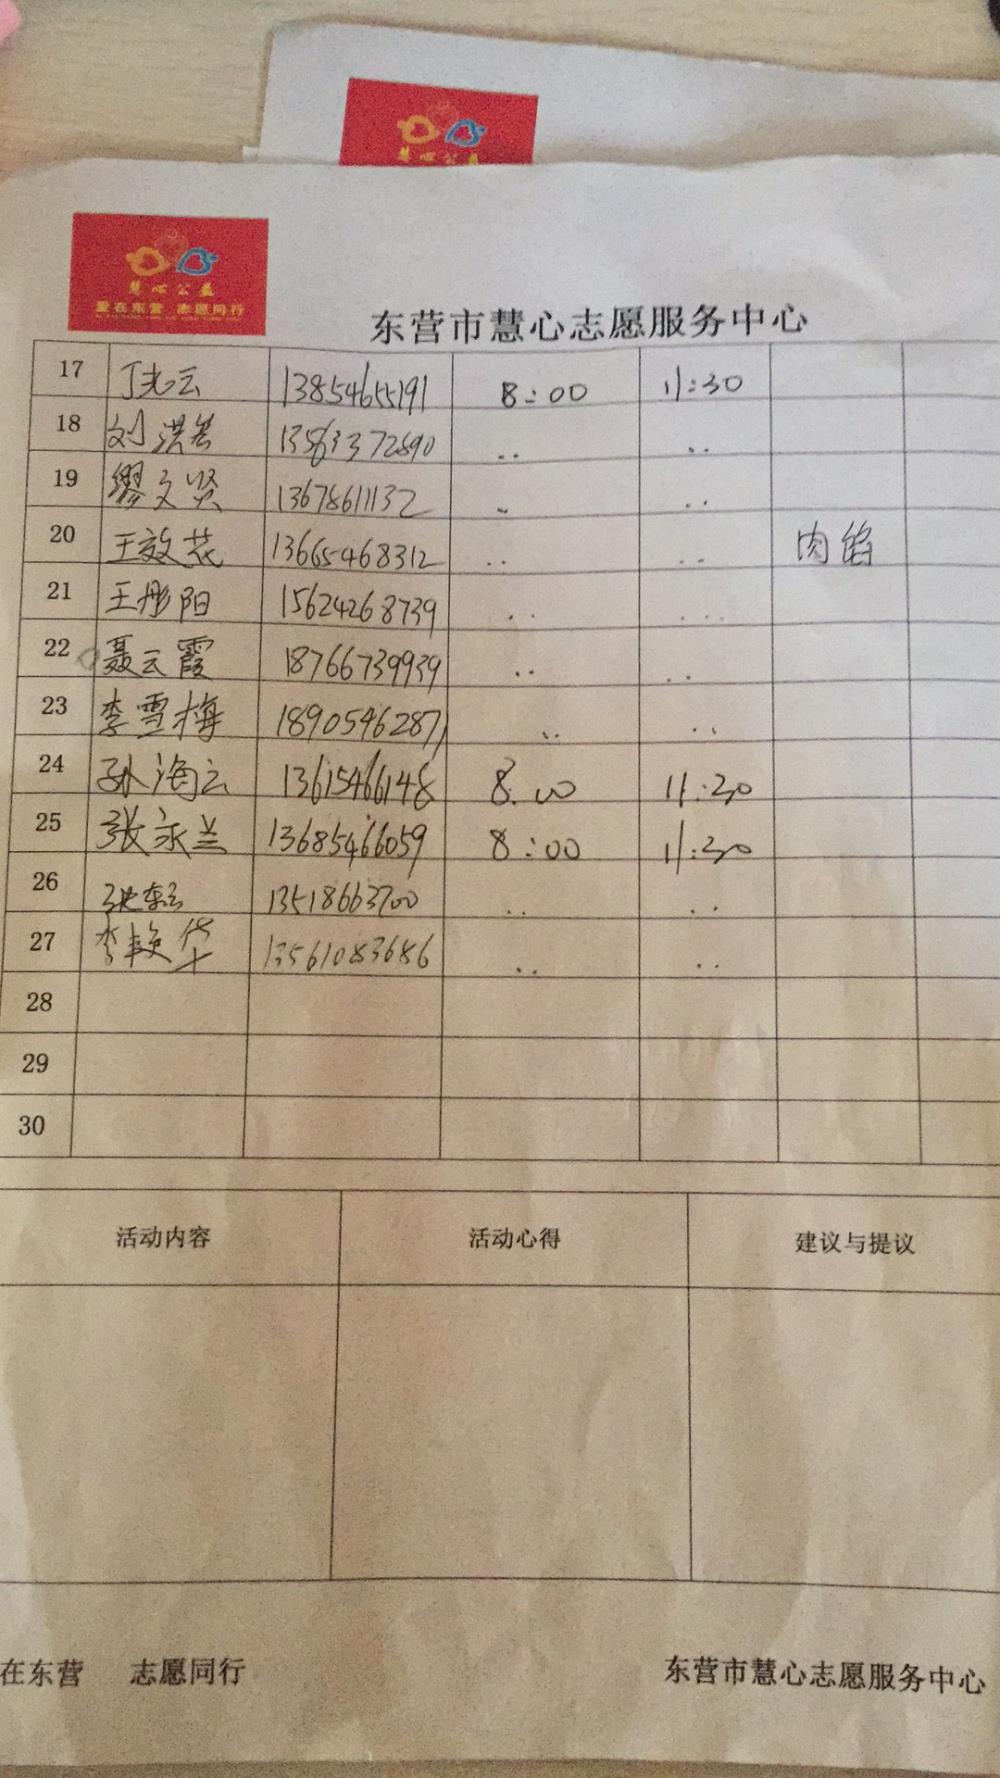 慧心公益
慧心公益
爱在东营 志愿同行
东营市慧心志愿服务中心
17 丁光云 13854655191 8:00 11:30
18 刘洪 13563372890 .. ..
19 缪文贤 13678611132 .. ..
20 王效花 13665468312 .. .. 肉馅
21 王彤阳 15624268739 .. ..
22 聂云霞 18766739939 .. ..
23 李雪梅 18905462871 .. ..
24 孙海云 13615466148 8:00 11:30
25 张永兰 13685466059 8:00 11:30
26 13518663700 .. ..
27 李艳华 13561083686 .. ..
28
29
30
活动内容 活动心得 建议与提议
在东营 志愿同行 东营市慧心志愿服务中心